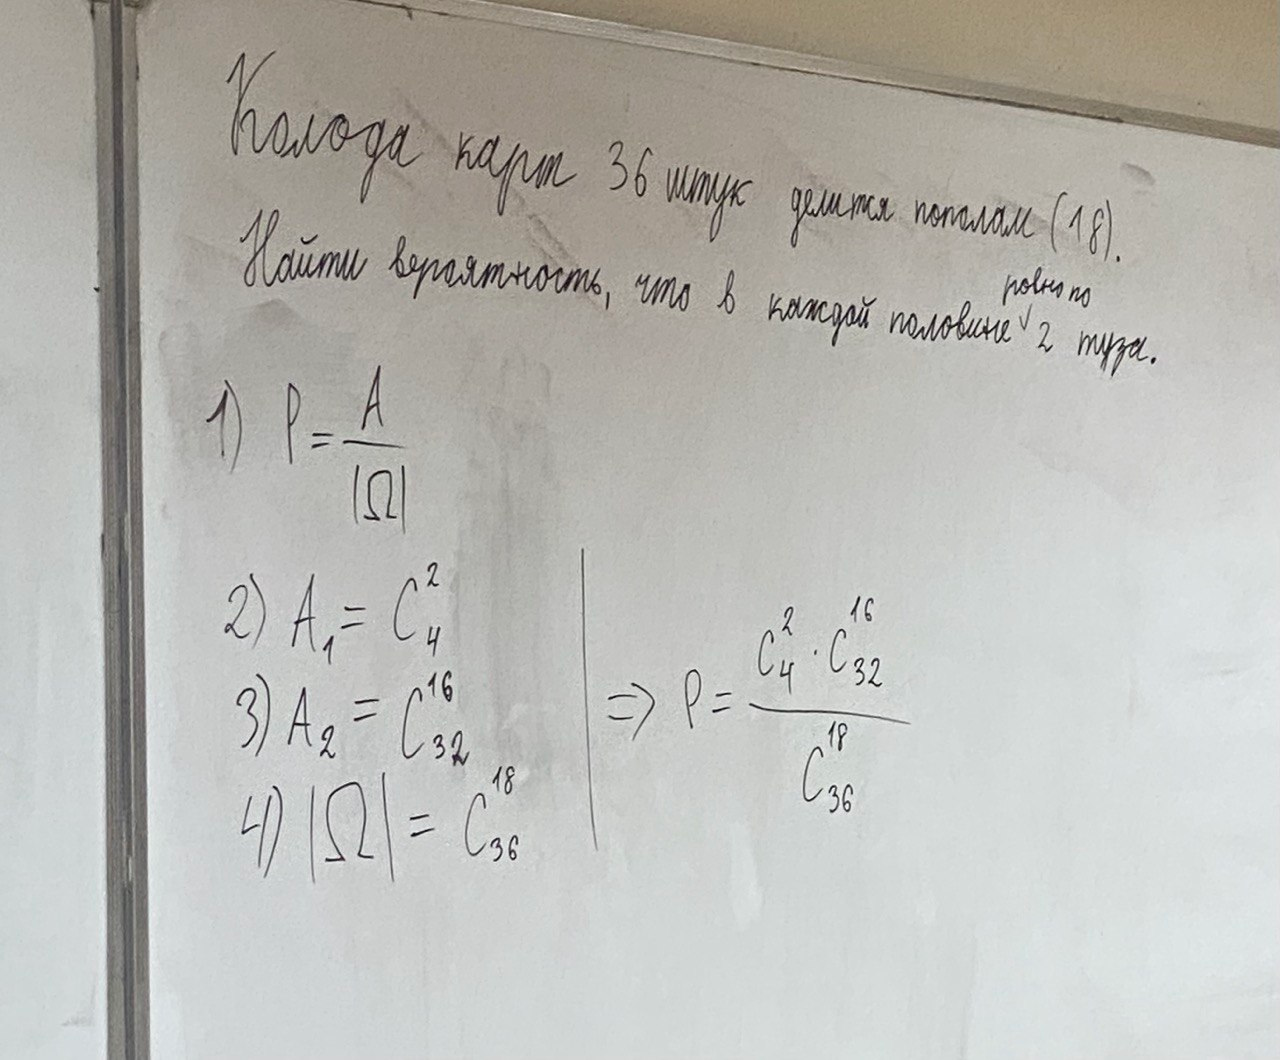 Колода карт 36 штук делится пополам (18).
Найти вероятность, что в каждой половине ровно по 2 туза.
1) P = A / |Ω|
2) A₁ = C₄²
3) A₂ = C₃₂¹⁶
4) |Ω| = C₃₆¹⁸
⇒ P = C₄² · C₃₂¹⁶ / C₃₆¹⁸